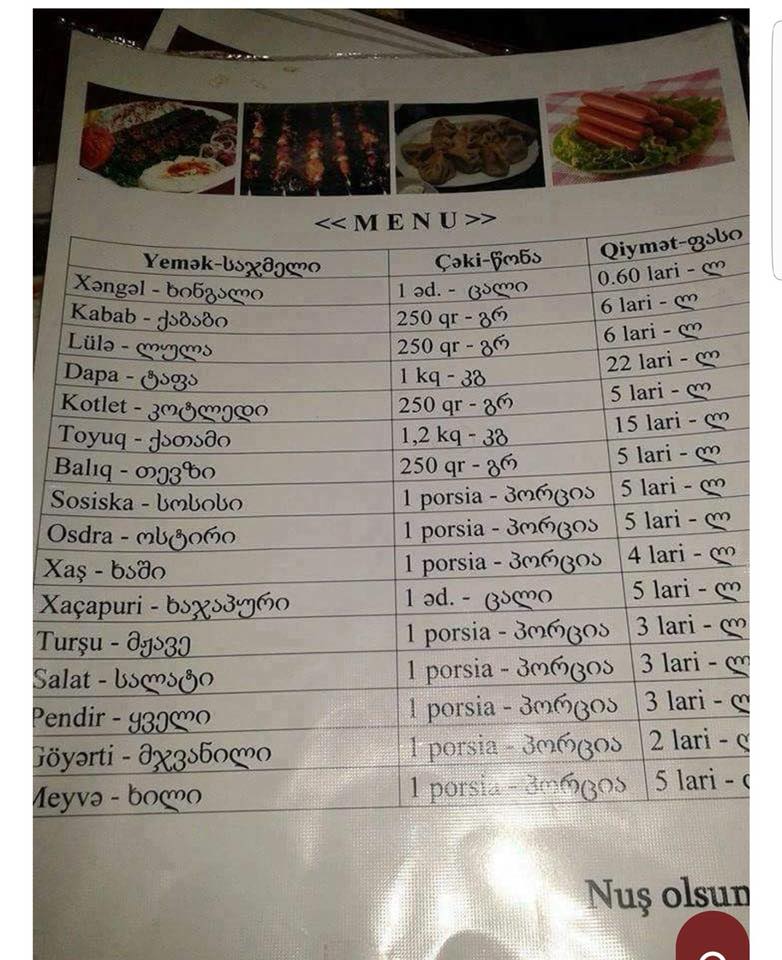 << M E N U >>
Yemək-საჭმელი Çəki-წონა Qiymət-ფასი
Xəngəl - ხინგალი 1 əd. - ცალი 0.60 lari - ლ
Kabab - ქაბაბი 250 qr - გრ 6 lari - ლ
Lülə - ლულა 250 qr - გრ 6 lari - ლ
Dapa - ტაფა 1 kq - კგ 22 lari - ლ
Kotlet - კოტლედი 250 qr - გრ 5 lari - ლ
Toyuq - ქათამი 1,2 kq - კგ 15 lari - ლ
Balıq - თევზი 250 qr - გრ 5 lari - ლ
Sosiska - სოსისი 1 porsia - პორცია 5 lari - ლ
Osdra - ოსტირი 1 porsia - პორცია 5 lari - ლ
Xaş - ხაში 1 porsia - პორცია 4 lari - ლ
Xaçapuri - ხაჯაპური 1 əd. - ცალი 5 lari - ლ
Turşu - მჟავე 1 porsia - პორცია 3 lari - ლ
Salat - სალატი 1 porsia - პორცია 3 lari - ლ
Pendir - ყველი 1 porsia - პორცია 3 lari - ლ
Göyərti - მჯვანილი 1 porsia - პორცია 2 lari - ლ
Meyvə - ხილი 1 porsia - პორცია 5 lari -
Nuş olsun